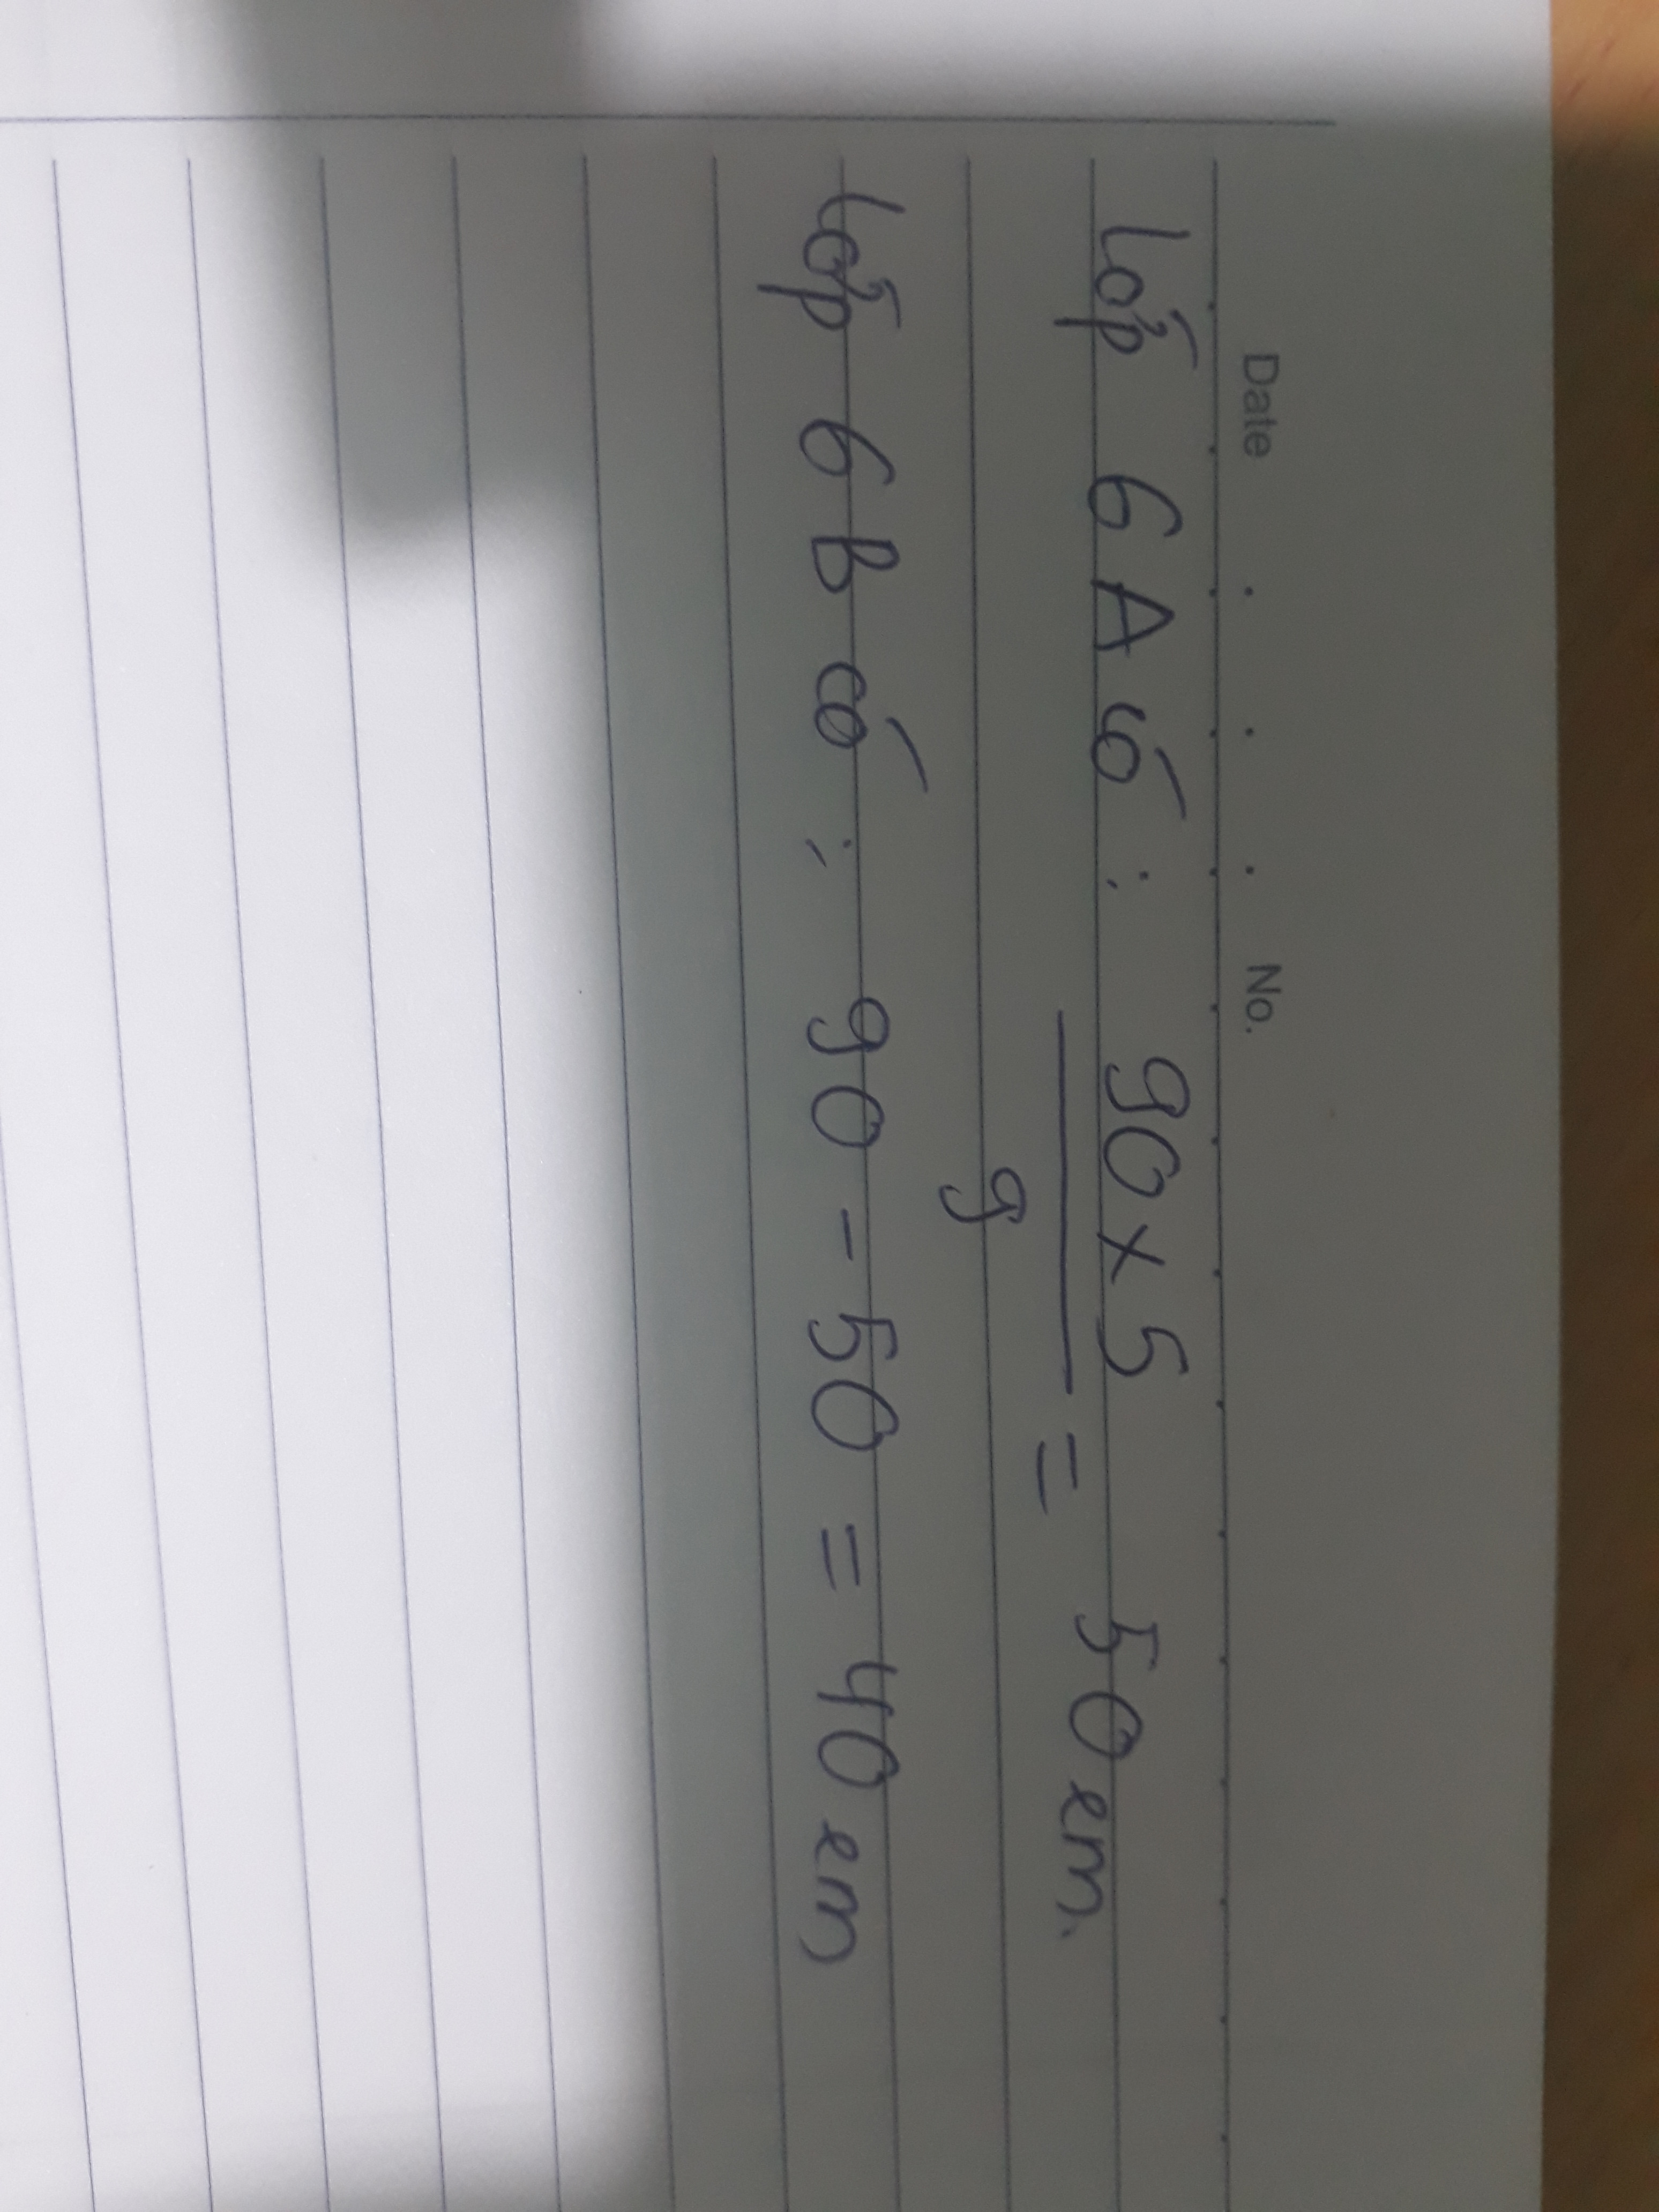 Date . . . No.
Lớp 6A có : 90 x 5
= 50 em.
9
Lớp 6B có : 90 - 50 = 40 em